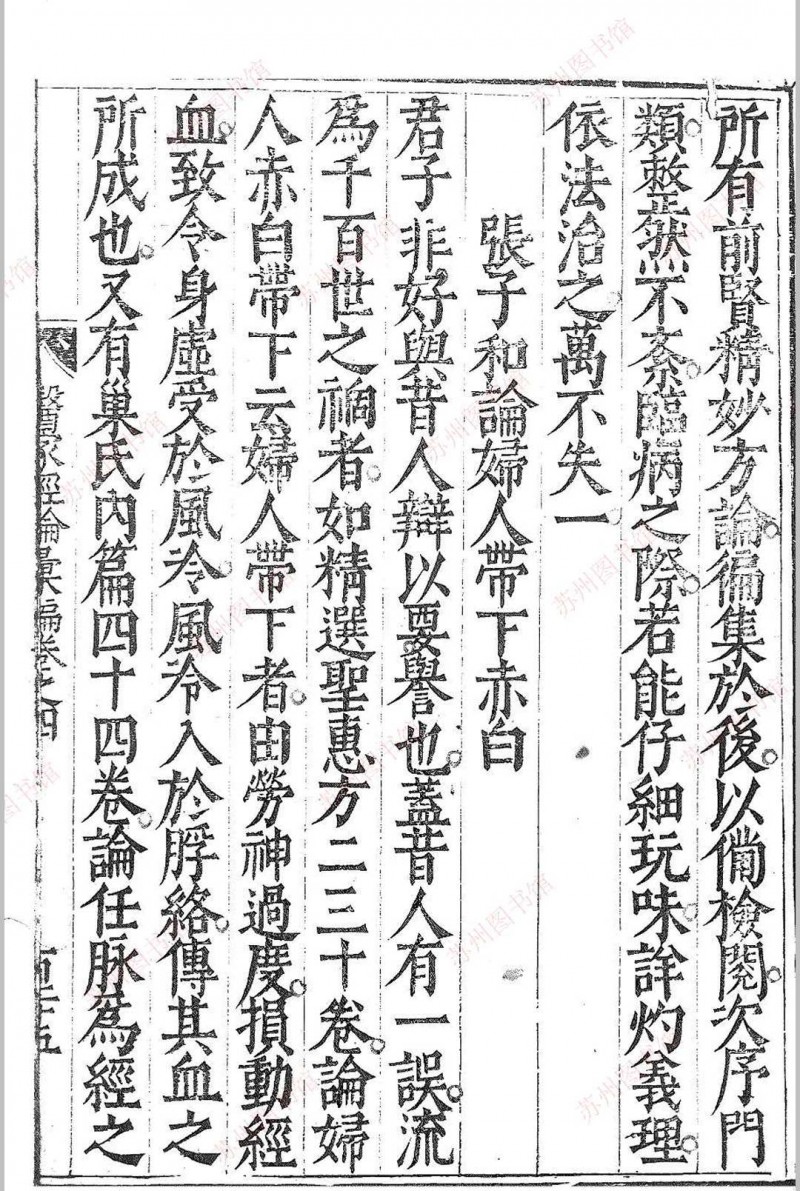 所有前賢精妙方論。徧集於後。以備檢閱。次序門
類。整然不紊。臨病之際。若能仔細玩味。詳灼義理。
依法治之。萬不失一。
張子和論婦人帶下赤白
君子非好與昔人辯以要譽也。蓋昔人有一誤。流
爲千百世之禍者。如精選聖惠方二三十卷。論婦
人赤白帶下云。婦人帶下者。由勞神過度。損動經
血。致令身虛。受於風冷。風冷入於脬絡。傳其血之
所成也。又有巢氏內篇四十四卷。論任脉爲經之
醫家經論彙編卷之四
苏州图书馆